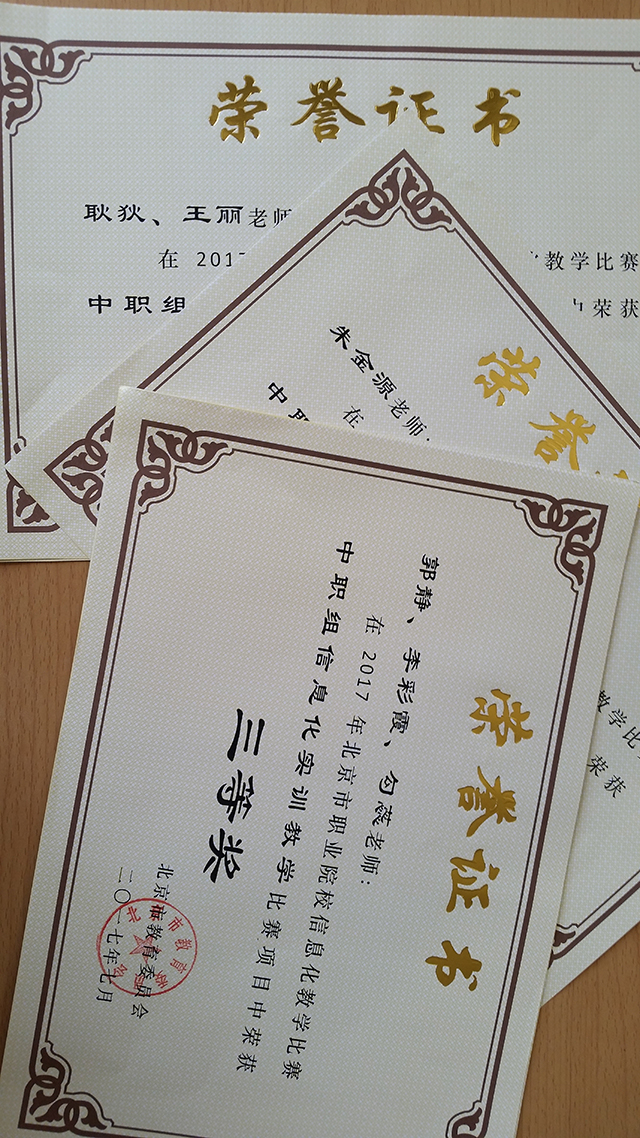 荣誉证书
耿狄、王丽老师
在 2017
教学比赛
中职组
荣获
荣誉
朱金源老师:
在
中职
教学比
荣获
荣誉证书
郭静、李彩霞、勾蕊老师:
在 2017 年北京市职业院校信息化教学比赛
中职组信息化实训教学比赛项目中荣获
三等奖
北京市教育委员会
二〇一七年七月